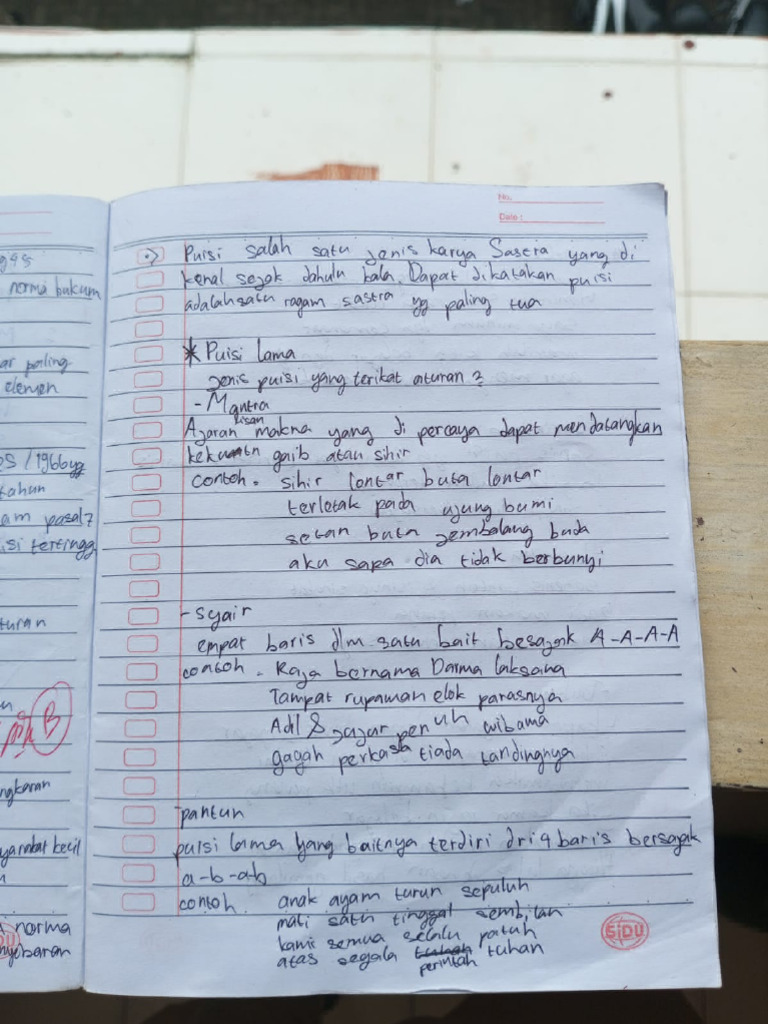 gas
norma hukum
ar paling
elemen
S / 1966 yg
tahun
am pasal 7
isi tertingg
turan
B
ngkaran
yarakat kecil
norma
nyebaran
No.
Date :
•> Puisi salah satu jenis karya Sastra yang di
kenal sejak dahulu kala. Dapat dikatakan puisi
adalah satu ragam sastra yg paling tua
* Puisi lama
jenis puisi yang terikat aturan ?
- Mantra
Ajaran lisan makna yang di percaya dapat mendatangkan
gaib atau sihir
contoh. sihir lontar buta lontar
terletak pada ujung bumi
setan buta jembalang buda
aku sapa dia tidak berbunyi
- syair
empat baris dlm satu bait besajak A-A-A-A
contoh. Raja bernama Darma laksana
Tampat rupawan elok parasnya
Adil & jujur penuh wibama
gagah perkasa tiada tandingnya
pantun
puisi lama yang baitnya terdiri dri 4 baris bersajak
a-b-a-b
contoh. anak ayam turun sepuluh
mati satu tinggal sembilan
kami semua selalu patuh
atas segala perintah tuhan
SiDU